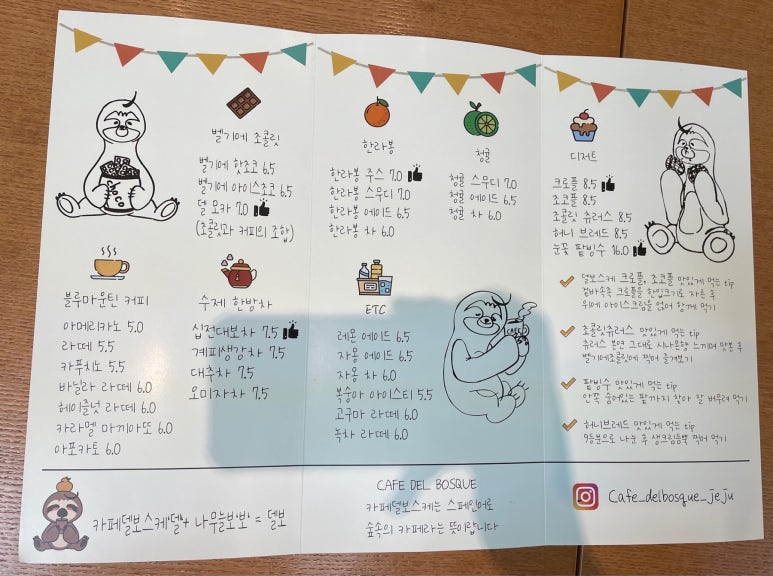 벨기에 초콜릿
벨기에 핫초코 6.5
벨기에 아이스초코 6.5
델 모카 7.0
(초콜릿과 커피의 조합)
블루마운틴 커피
아메리카노 5.0
라떼 5.5
카푸치노 5.5
바닐라 라떼 6.0
헤이즐넛 라떼 6.0
카라멜 마끼아또 6.0
아포카토 6.0
수제 한방차
십전대보차 7.5
계피생강차 7.5
대추차 7.5
오미자차 7.5
한라봉
한라봉 주스 7.0
한라봉 스무디 7.0
한라봉 에이드 6.5
한라봉 차 6.0
청귤
청귤 스무디 7.0
청귤 에이드 6.5
청귤 차 6.0
ETC
레몬 에이드 6.5
자몽 에이드 6.5
자몽 차 6.0
복숭아 아이스티 5.5
고구마 라떼 6.0
녹차 라떼 6.0
디저트
크로플 8.5
초코플 8.5
초콜릿 츄러스 8.5
허니 브레드 8.5
눈꽃 팥빙수 16.0
델보스케 크로플, 초코플 맛있게 먹는 tip
겉바속촉 크로플을 한입크기로 자른 후
위에 아이스크림을 얹어 함께 먹기
초콜릿츄러스 맛있게 먹는 tip
츄러스 본연 그대로 시나몬향 느끼며 맛본 후
벨기에초콜릿에 찍어 즐겨보기
팥빙수 맛있게 먹는 tip
안쪽 숨어있는 팥까지 찾아 잘 버무려 먹기
허니브레드 맛있게 먹는 tip
9등분으로 나눈 후 생크림듬뿍 찍어 먹기
카페델보스케'델'+ 나무늘보'보' = 델보
CAFE DEL BOSQUE
카페델보스케는 스페인어로
숲속의 카페라는 뜻이랍니다
Cafe_delbosque_jeju